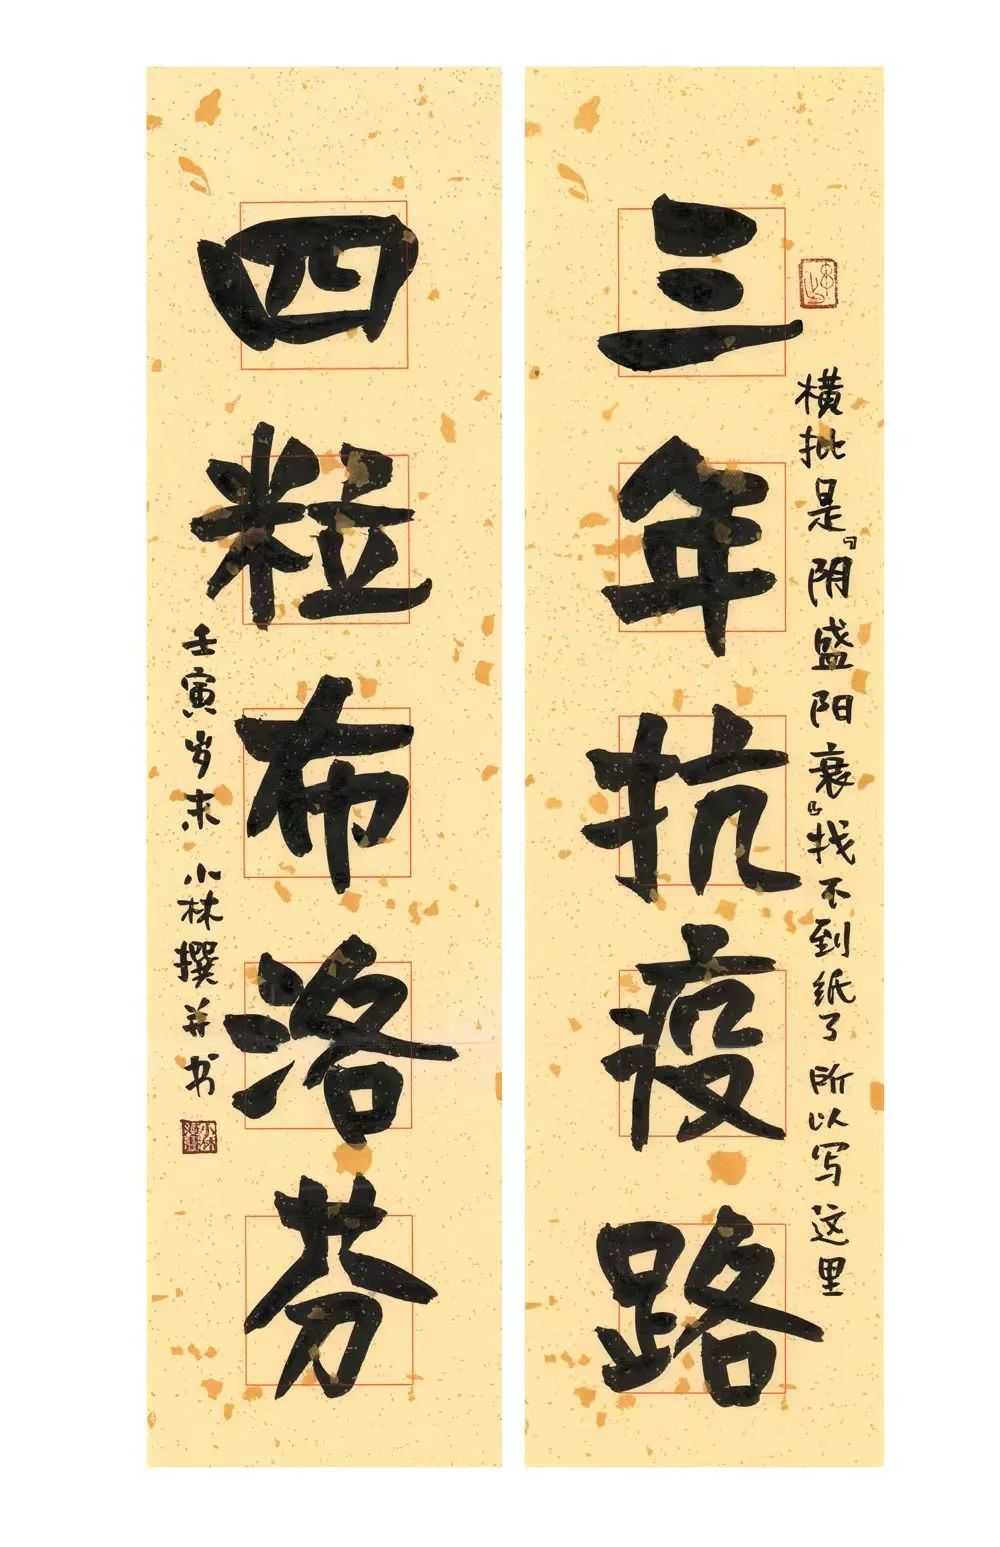 三年抗疫路
横批是『阴盛阳衰』找不到纸了 所以写这里
四粒布洛芬
壬寅岁末 小林撰并书